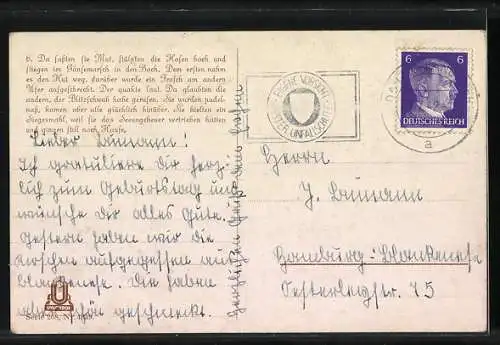 6. Da faßten sie Mut, stülpten die Hosen hoch und
stiegen im Gänsemarsch in den Bach. Dem ersten nahm
es den Hut weg, darüber wurde ein Frosch am andern
Ufer aufgeschreckt. Der quakte laut. Da glaubten die
andern, der Blitzschwab habe gerufen. Sie wurden pudel-
naß, kamen aber alle glücklich hinüber. Sie hielten ein
Siegesmahl, weil sie das Seeungeheuer vertrieben hätten
und gingen still nach Hause.
Lieber
Ich gratuliere dir herz-
lich zum Geburtstag und
wünsche dir alles Gute.
Gestern haben wir die
Kirschen aufgegessen aus
Blankenese. Die haben
aber schön geschmeckt.
Herzlichen Gruß
Serie 268, Nr.
EIGENE VORSICHT
BESTER UNFALLSCHUTZ
6 6
DEUTSCHES REICH
a
Herrn
J.
Hamburg-Blankenese
15